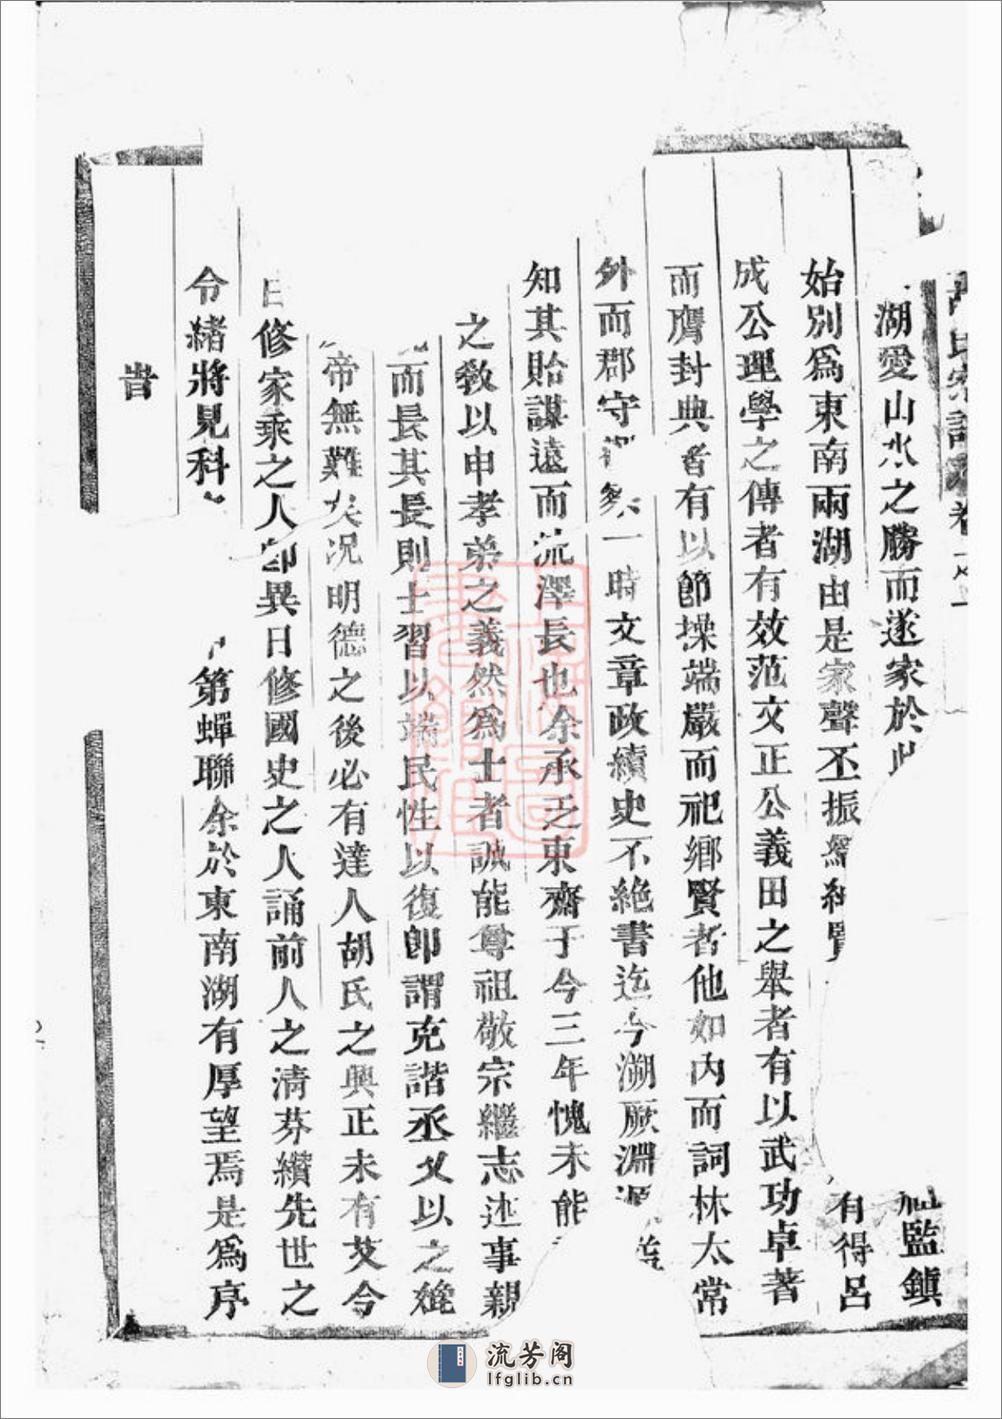 氏家譜 卷
湖愛山水之勝而遂家於此 監鎮
始別爲東南兩湖由是家聲丕振 有得呂
成公理學之傳者有效范文正公義田之舉者有以武功卓著
而膺封典者有以節操端嚴而祀鄉賢者他如內而詞林太常
外而郡守 一時文章政績史不絶書迄今溯厥淵源
知其貽謀遠而流澤長也余承乏東齋于今三年愧未能
之敎以申孝弟之義然爲士者誠能尊祖敬宗繼志述事親
而長其長則士習以端民性以復卽謂克諧丞父以之
帝無難矣况明德之後必有達人胡氏之興正未有艾今
日修家乘之人卽異日修國史之人誦前人之淸芬纘先世之
令緒將見科 第蟬聯余於東南湖有厚望焉是爲序
旹
流芳阁
lfglib.cn